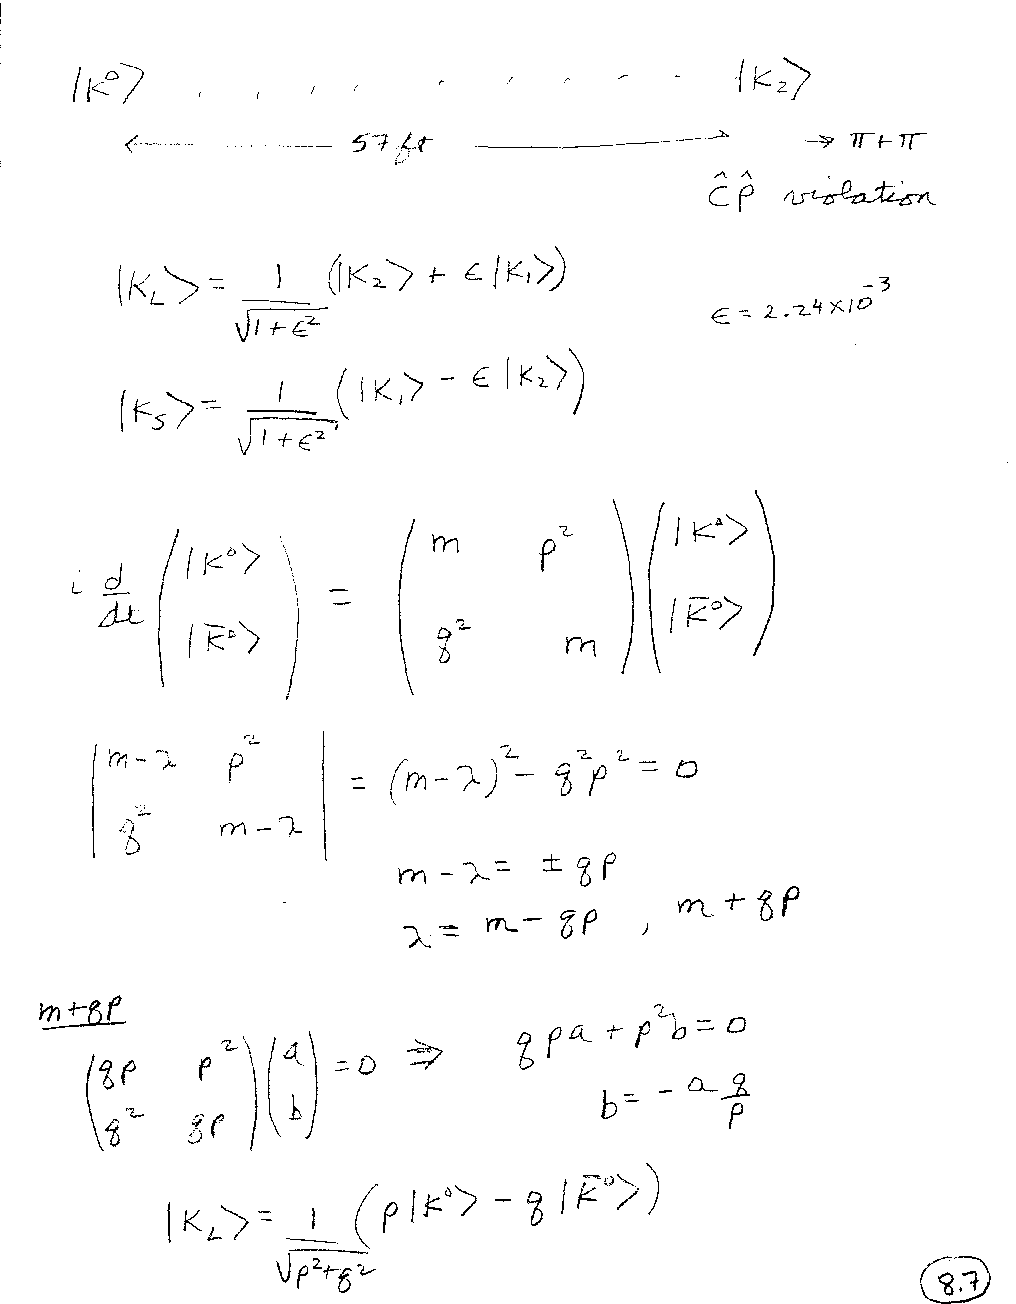 |K⁰> . . . . . . . . . . |K₂>
<--- 57 ft ---> → π + π
ĈP̂ violation
|K_L> = 1/√(1+ϵ²) (|K₂> + ϵ|K₁>)
ϵ = 2.24×10⁻³
|K_S> = 1/√(1+ϵ²) (|K₁> - ϵ|K₂>)
i d/dt (|K⁰> ; |K̄⁰>) = (m p² ; q² m) (|K⁰> ; |K̄⁰>)
|m-λ p² ; q² m-λ| = (m-λ)² - q²p² = 0
m-λ = ± qp
λ = m - qp , m + qp
m+qp
(qp p² ; q² qp) (a ; b) = 0 ⇒ qpa + p²b = 0
b = -a q/p
|K_L> = 1/√(p²+q²) (p|K⁰> - q|K̄⁰>)
8.7